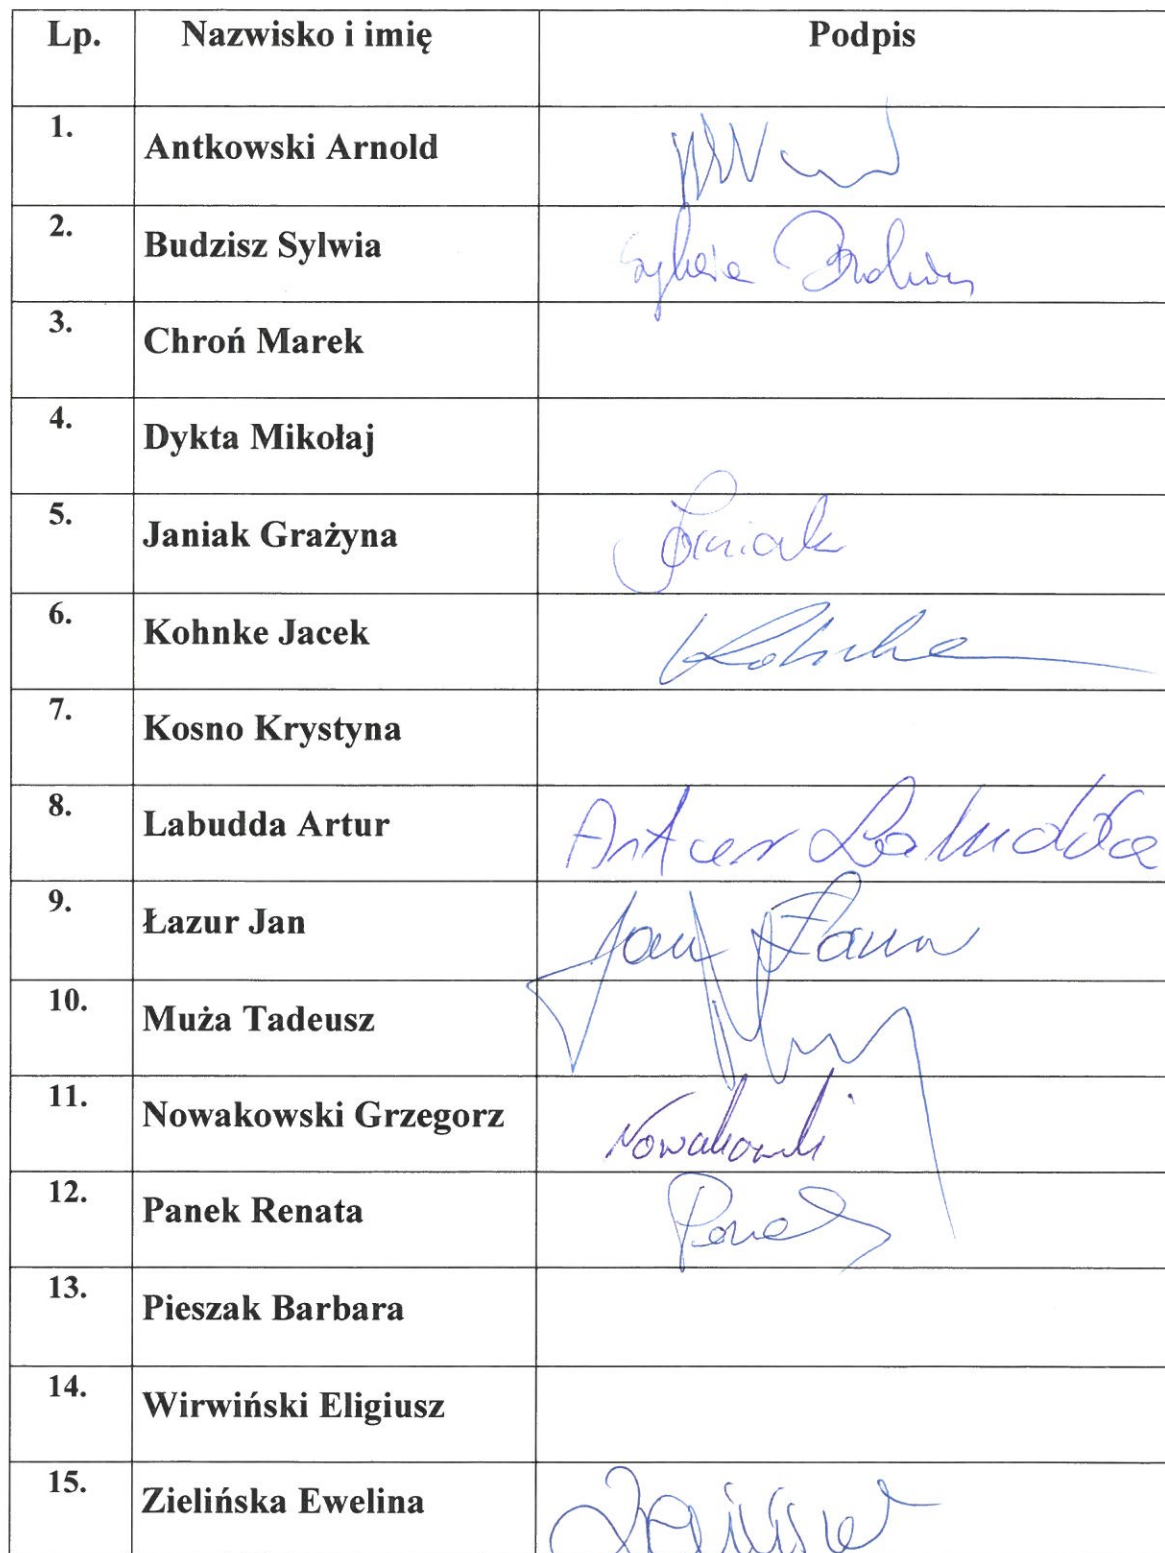 Lp. Nazwisko i imię Podpis
1. Antkowski Arnold
2. Budzisz Sylwia Sylwia Budzisz
3. Chroń Marek
4. Dykta Mikołaj
5. Janiak Grażyna Janiak
6. Kohnke Jacek Kohnke
7. Kosno Krystyna
8. Labudda Artur Artur Labudda
9. Łazur Jan Jan Łazur
10. Muża Tadeusz
11. Nowakowski Grzegorz Nowakowski
12. Panek Renata Panek
13. Pieszak Barbara
14. Wirwiński Eligiusz
15. Zielińska Ewelina